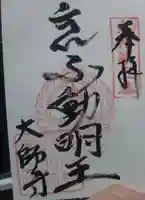 奉拝
不動明王
大師寺